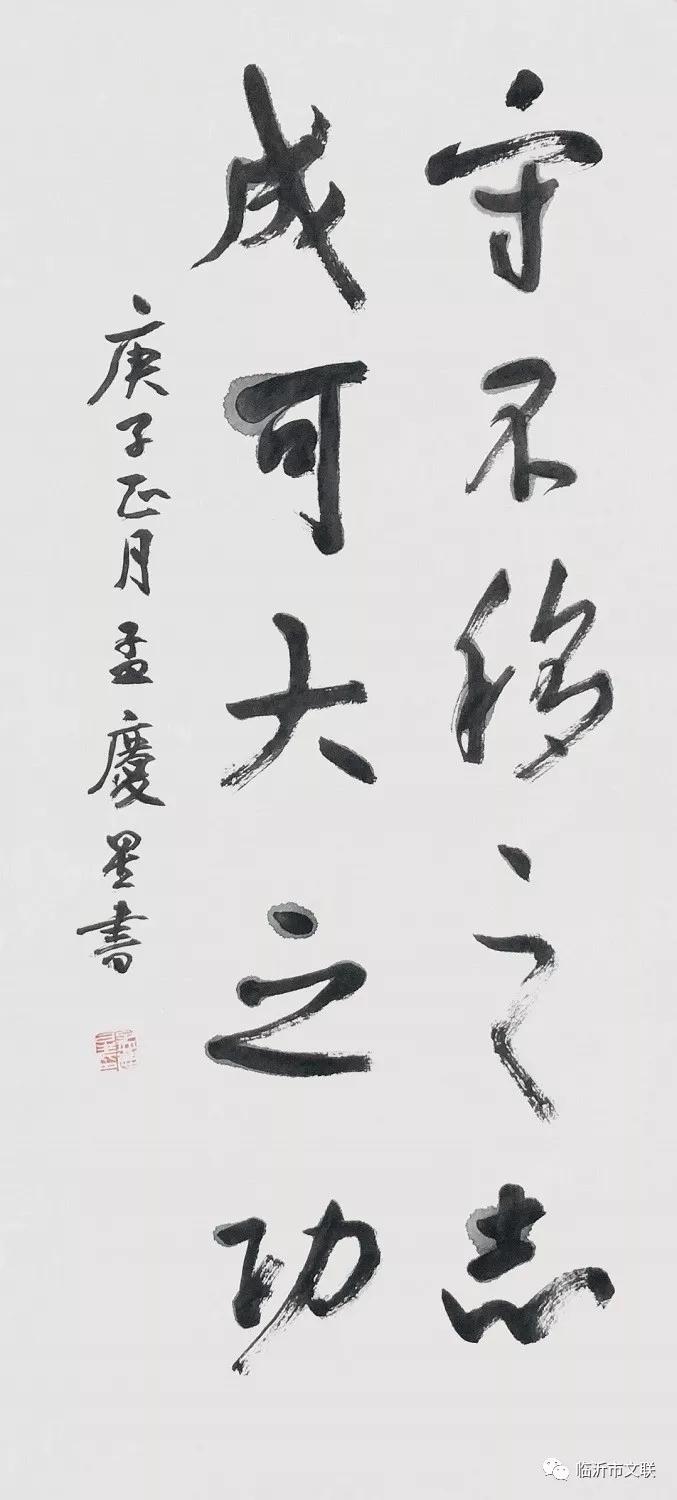 守不移之志
成可大之功
庚子正月孟慶星書
临沂市文联